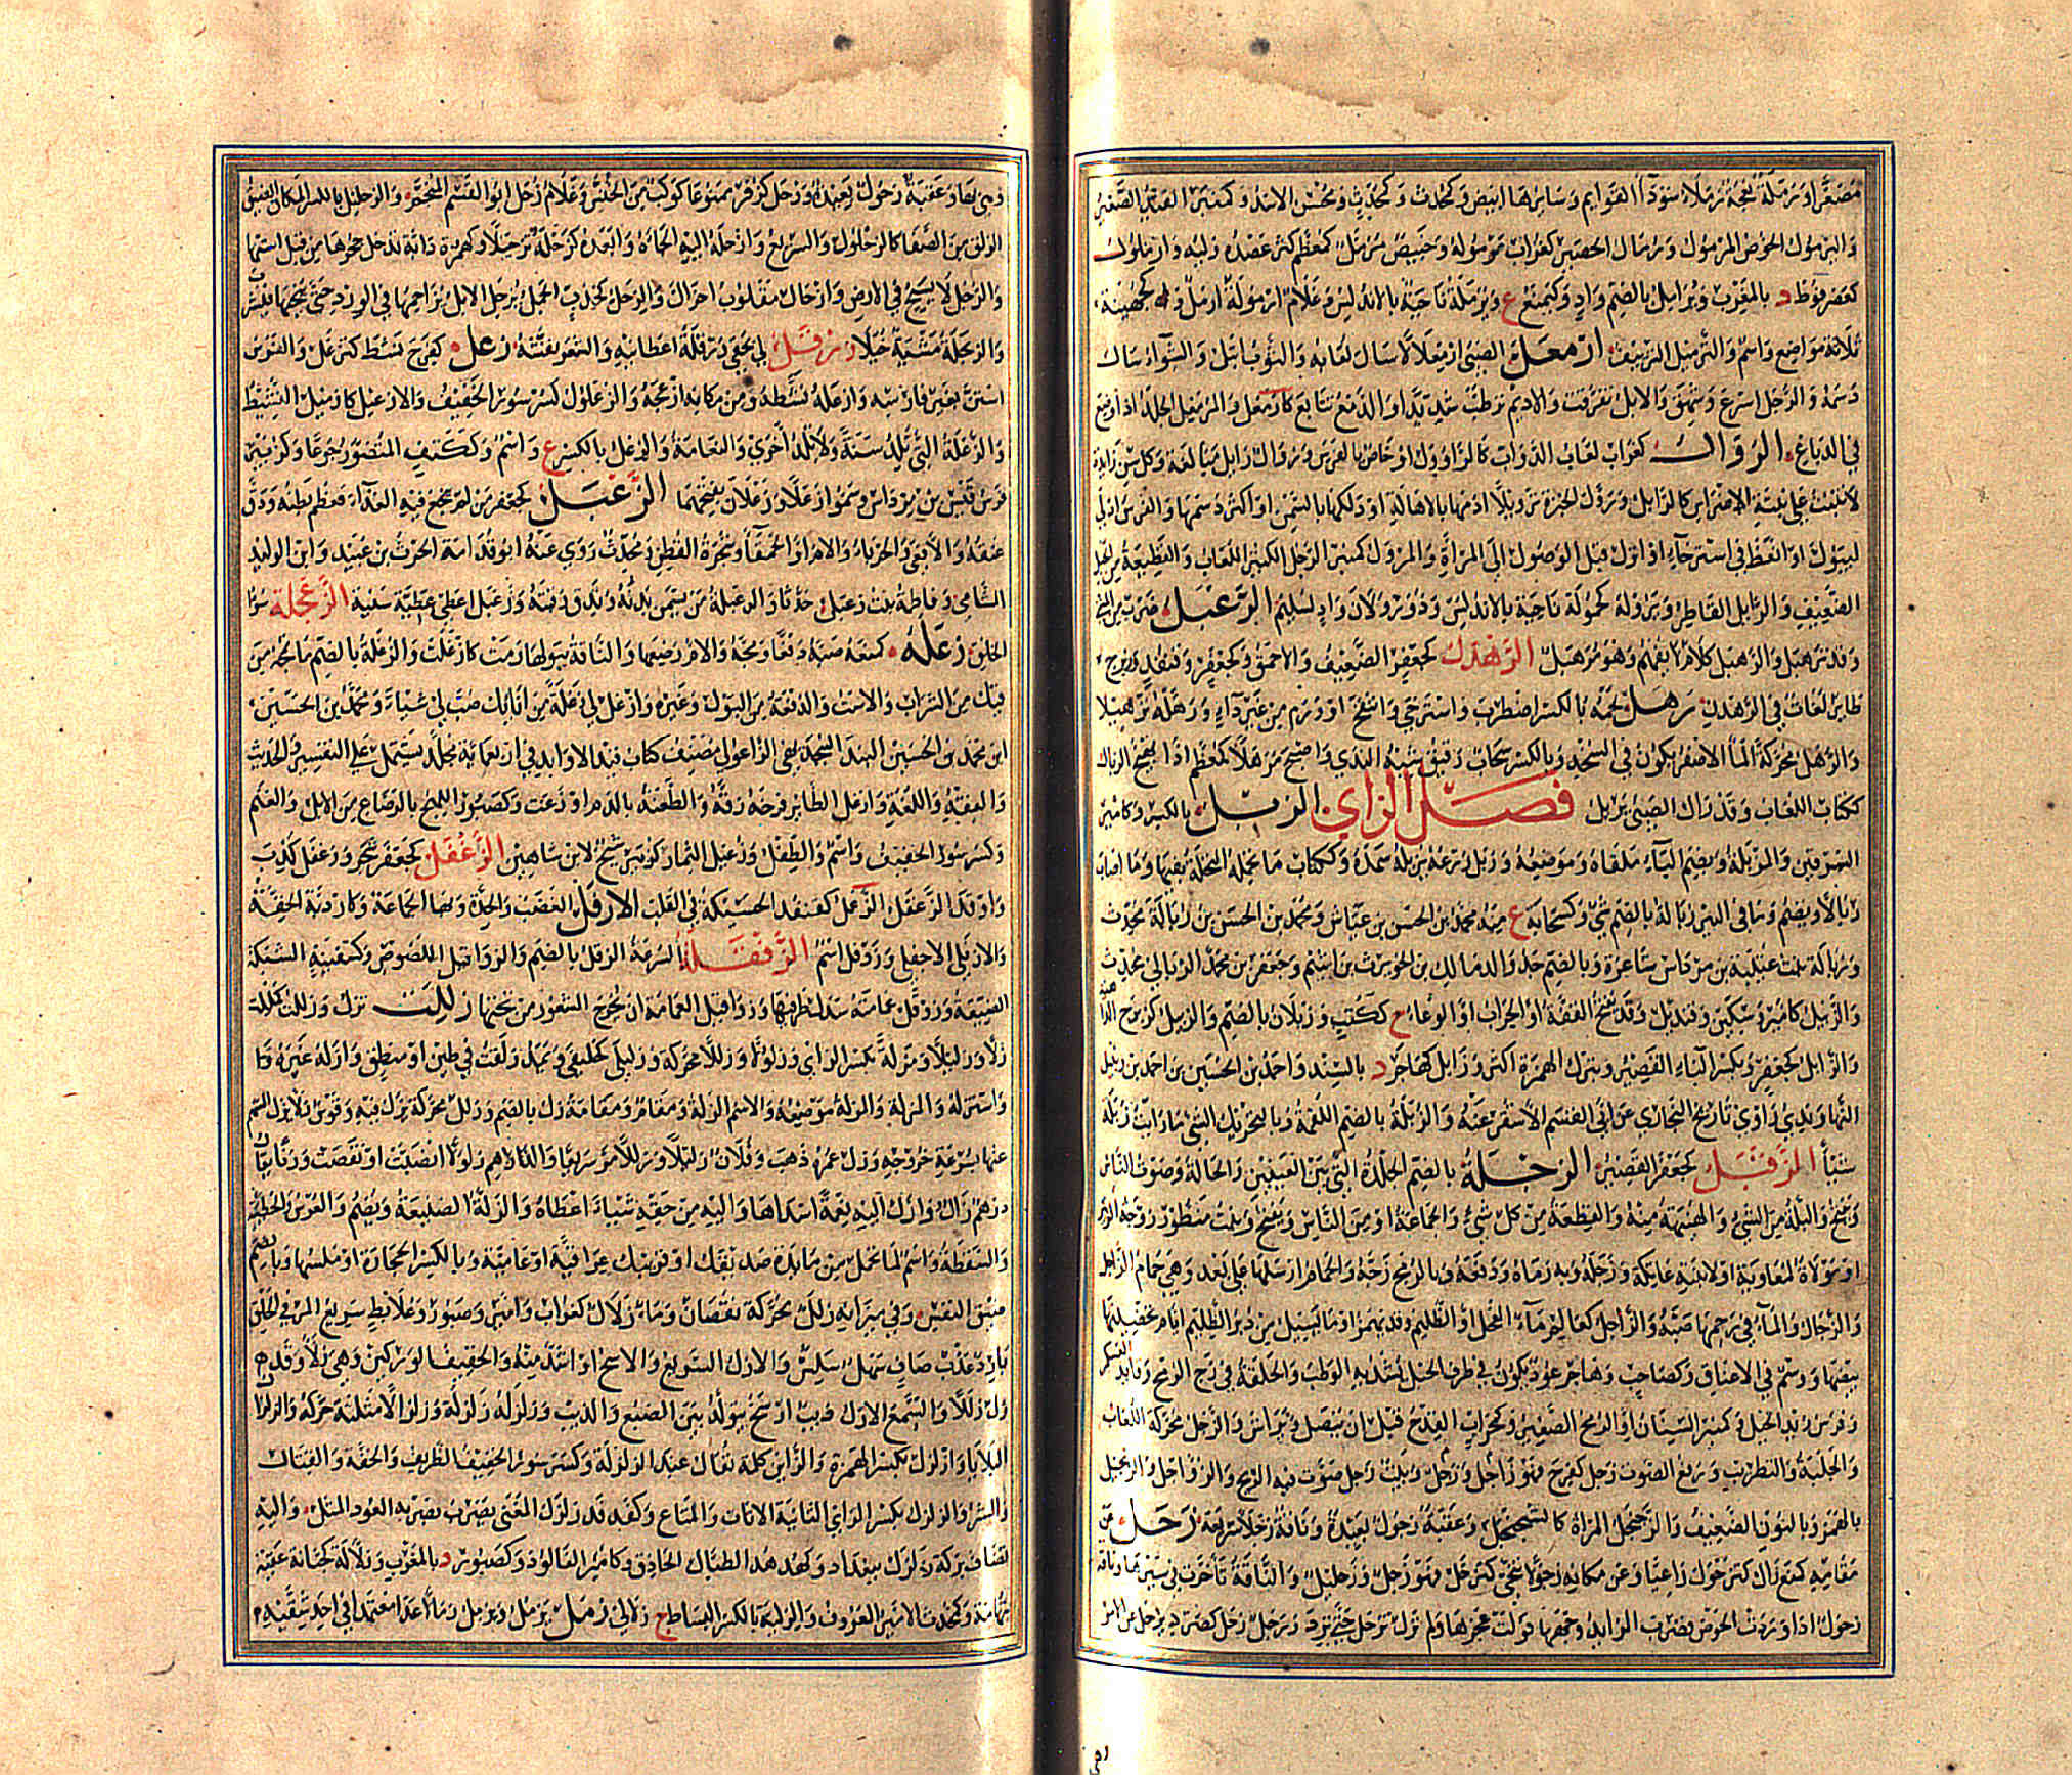 مصغرا ورملة نعجة رملاء سوداء القوائم وسائرها ابيض وكمحدث وكمحدث ومحسن الاسد وكمنبر القتب الصغير
واليرمول الخوص المرمول ورمال الحصير كغراب مرموله وخبيص مرمل كمعظم كثر عصده وليه وارملول
كعضرفوط د بالمغرب ويرامل بالضم واد وكيمنع ع ورملة ناحية بالاندلس وغلام ارمولة ارمل و كجهينة
ثلاثة مواضع واسم والترميل التزييف ارمعل الصبي ارمعلالا سال لعابه والثوب ابتل والشواء سال
دسمه والرجل اسرع وشهق والابل تفرقت والاديم ترطب شديدا والدمع تتابع كارمعل والمرمعل الجلد اذا وضع
في الدباغ الروال كغراب لعاب الدواب كالراؤول او خاص بالفرس وروال رائل مبالغة وكل سن زائدة
لا تنبت على نبتة الاضراس كالرائل وترول الخبزة ترويلا ادمها بالاهالة او دلكها بالسمن او اكثر دسمها والفرس ادلى
ليبول او انعظ في استرخاء او انزل قبل الوصول الى المراة والمرول كمنبر الرجل الكثير اللعاب والقطيعة من الحبل
الضعيف والرائل القاطر وترولة كحمولة ناحية بالاندلس وذو رولان واد لسليم الرعبل ضرب من المشي
وقد ترهبل والرهبل كلام لا يفهم وهو مرهبل الرهدل كجعفر الضعيف والاحمق وكجعفر وقنفذ وزبرج
طائر لغات في الرهدن رهل لحمه بالكسر اضطرب واسترخى وانتفخ او ورم من غير داء ورهله ترهيلا
والرهل محركة الماء الاصفر يكون في السخد وبالكسر سحاب رقيق شبيه الندى واصبح مرهلا كمعظم اذا تهيج الريال
ككتاب اللعاب وقد رال الصبي يريل فصل الزاي الزبل بالكسر وكامير
السرقين والمزبلة وبضم الباء ملقاه وموضعه وزبل زرعه يزبله سمده وككتاب ما تحمله النحلة بفيها وما اصاب
زبالا ويضم وما في البئر زبالة بالضم شيء وكسحابة ع منه محمد بن الحسن بن عياش ومحمد بن الحسن بن زبالة محدث
وزبالة بنت عتيبة بن مرداس شاعرة وبالضم جد والد مالك بن الحويرث بن اشيم وجعفر بن محمد الزبالي محدث
والزبيل كامير وسكين وقنديل وقد يفتح القفة او الجراب او الوعاء ج ككتب وزبلان بالضم والزبيل كزبرج
والزئبل كجعفر وبكسر الباء القصير وبترك الهمزة اكثر وزابل كهاجر د بالسند واحمد بن الحسين بن احمد بن زنبيل
النهاوندي راوي تاريخ البخاري عن ابي القسم الاشقر عنه والزبلة بالضم اللقمة وبالتحريك الشيء ما رزاته زبلة
شيئا الزفتل كجعفر القصير الزجلة بالضم الجلدة التي بين العينين والحالة وصوت الناس
ويفتح والبلة من الشيء والهنيهة منه والقطعة من كل شيء والجماعة او من الناس ويفتح وبنت منظور زوجة الزبير
او مولاة لمعاوية او لابنته عاتكة وزجله وبه رماه ودفعه وبالرمح زجه والحمام ارسلها على بعد وهي حمام الزاجل
والزجال والماء في رحمها صبه والزاجل كعالم ماء الفحل او الظليم وقد يهمز او ما يسيل من دبر الظليم ايام تحضينها
بيضها ووسم في الاعناق وكصاحب وهاجر عود يكون في طرف الحبل يشد به الوطب والحلقة في زج الرمح وقائد العسكر
وفرس زيد الخيل وكمنبر السنان او الرمح الصغير وكمحراب القدح قبل ان ينصل ويراش والزجل محركة اللعب
والجلبة والتطريب ورفع الصوت زجل كفرح فهو زجل وزاجل ونبت زجل صوت فيه الريح والزواجل والزنجيل
بالهمز وبالنون الضعيف والزجنجل المراة كالسجنجل وعقبة زجول بعيدة وناقة زجلاء سريعة زحل عن
مقامه كمنع زال كتزحول واعيا وعن مكانه زحولا تنحى كتزحل فهو زحل وزحليل والناقة تاخرت في سيرها وناقة
زحول اذا وردت الحوض فضرب الذائد وجهها فولته عجزها ولم تزل تزحل حتى ترد ورجل زحل كصرد يزحل عن الامر
وهي بهاء وعقبة زحول بعيدة وزحل كزفر ممنوعا كوكب من الخنس وغلام زحل ابو القسم المنجم والزحليل بالكسر المكان الضيق
الزلق من الصفا كالزحلول والسريع وازحله اليه الجاه وابعده كزحله تزحيلا وكهمزة دابة تدخل جحرها من قبل استها
والرجل لا يسيح في الارض وازحال مقلوب احزال والزحل كخدب الجمل يزحل الابل يزاحمها في الورد حتى ينحيها فيشرب
والزنجلة مشية خيلاء زرقل لي بحقي زرقلة اعطانيه والشعر نفشته زعل كفرح نشط كتزعل والفرس
استن بغير فارسه وازعله نشطه ومن مكانه ازعجه والزعلول كسرسور الخفيف والازعيل كازميل النشيط
والزعلة التي تلد سنة ولا تلد اخرى والنعامة والزعل بالكسر ع واسم وككتف المتضور جوعا وكزبير
فرس قيس بن مرداس وسموا زعلا وزعلان بفتحهما الزعبل كجعفر من لم ينجع فيه الغذاء فعظم بطنه ودق
عنقه والافعى والحرباء والام او الحمقاء وشجرة القطن ومحدث روى عنه ابو قدامة الحرث بن عبيد وابن الوليد
الشامي وفاطمة بنت زعبل حدثا والزعبلة من يسمن بدنه وتدق رقبته وزعبل اعطى عطية سنية الزعجلة سوء
الخلق زغله كمنعه صبه دفعا ومجه والام رضعها والناقة ببولها رمت كازغلت والزغلة بالضم ما تمجه من
فيك من الشراب والاست والدفعة من البول وغيره وازغل لي زغلة من انائك صب لي شيئا ومحمد بن الحسين
ابن محمد بن الحسين البنجديهي الزاغولي مصنف كتاب قيد الاوابد في اربعمائة مجلد يشتمل على التفسير والحديث
والفقه واللغة وازغل الطائر فرخه زقه والطعنة بالدم اوزغت وكصبور اللهج بالرضاع من الابل والغنم
وكسرسور الخفيف واسم والطفل وزغل اليمار كزبير شيخ لابن شاهين الزغفل كجعفر شجر وزغفل كذب
واوقد الزغفل الزغمل كقنفذ الحسيكة في القلب الازفل الغضب والحدة وبها الجماعة وكاردبة الخفة
والازفلى الاجفلى وزوفل اسم الزفقلة السرعة الزقل بالضم والزواقيل اللصوص وكسفينة السكة
الضيقة وزوقل عمامته سدل طرفيها وزواقيل العمامة ان يخرج الشعور من تحتها زللت تزل وزللت كمللت
زلا وزليلا ومزلة بكسر الزاي وزلولا وزللا محركة وزليلى كخليفى ويمد زلقت في طين او منطق وازله غيره
واستزله والمزلة والمزلة موضعه والاسم الزلة ومقام ومقامة زل بالضم وزلل محركة يزل فيه وقوس زلاء يزل السهم
عنها سرعة خروجه وزل عمره ذهب وفلان زليلا وزللا مر سريعا والدراهم زلولا انصبت او نقصت وزنا يقال
درهم زال وازل اليه نعمة اسداها واليه من حقه شيئا اعطاه والزلة الصنيعة ويضم والعرس والخطيئة
والسقطة واسم لما تحمل من مائدة صديقك او قريبك عراقية او عامية وبالكسر الحجارة او ملسها وبالضم
ضيق النفس وفي ميزانه زلل محركة نقصان وماء زلال كغراب وامير وصبور وعلابط سريع المر في الحلق
بارد عذب صاف سهل سلس والازل السريع والارسح او اشد منه والخفيف الوركين وهي زلاء وقد
زل زللا والسمع الازل ذئب ارسح يتولد بين الضبع والذئب وزلزله زلزلة وزلزالا مثلثة حركه والزلازل
البلايا وازلزل بكسر الهمزة والزايين كلمة تقال عند الزلزلة وكسرسور الخفيف الظريف والخفة والقتال
والشر والزلزل بكسر الزاي الثانية الاثاث والمتاع وكفدفد زلزل المغني يضرب بضربه العود المثل واليه
تضاف بركة زلزل ببغداد وكهدهد الطبال الحاذق وكامير الفالوذ وكصبور د بالمغرب وزلالة كجبانة عقبة
بتهامة وكمحدث الاشهر العزوف والزلية بالكسر البساط ج زلالي زمل يزمل ويزمل زمالا عدا معتمدا في احد شقيه